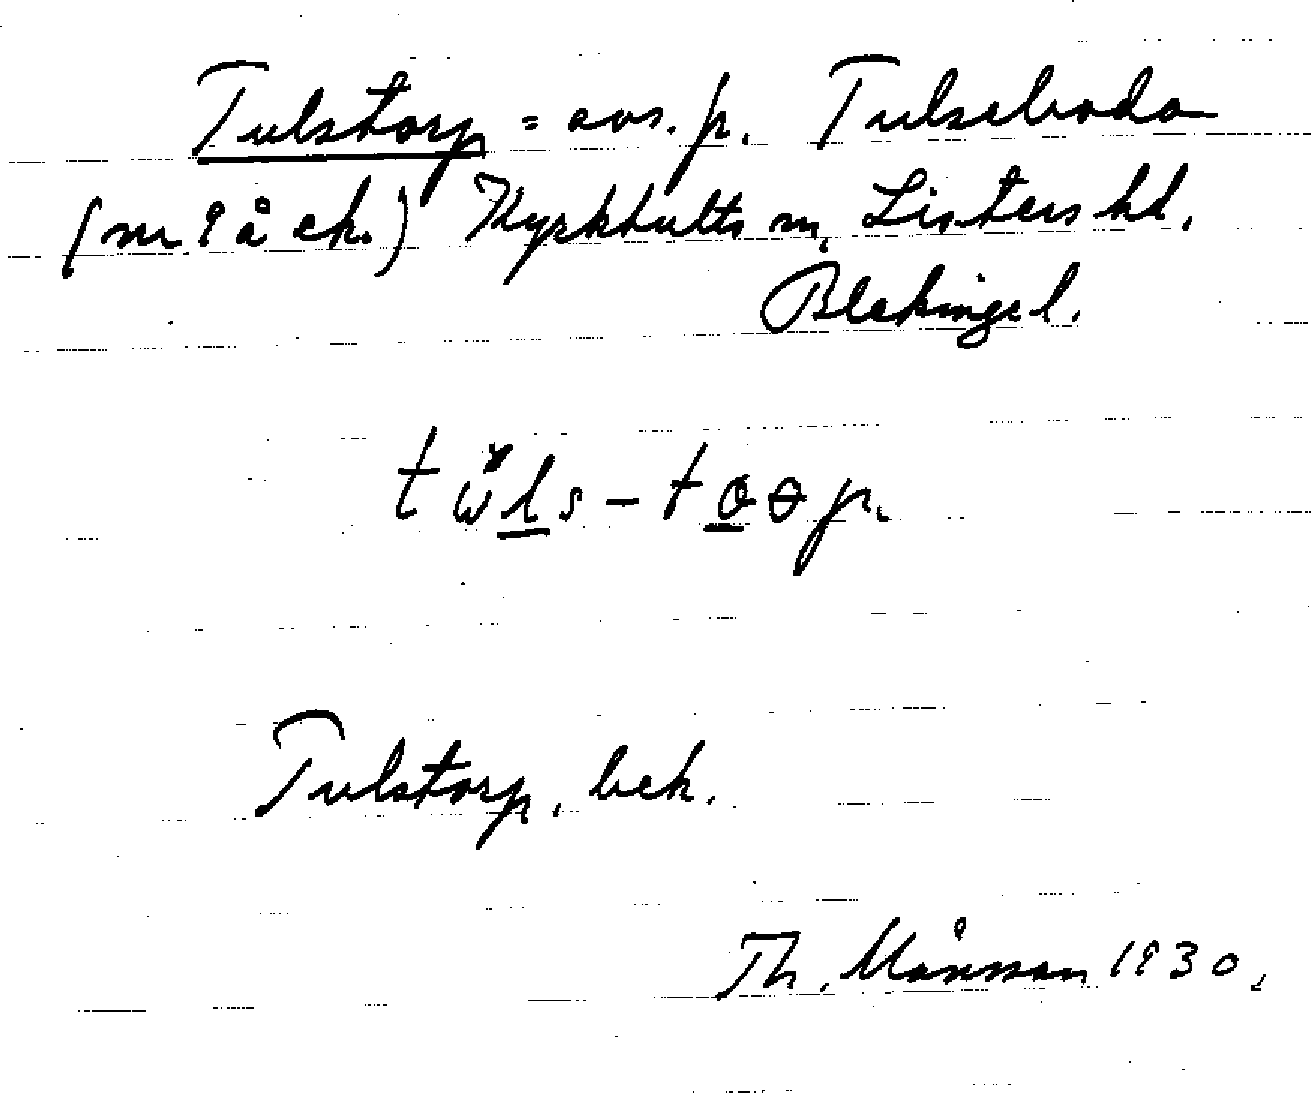 Tulstorp = avs. p. Tulseboda
(nr 9 å ek.) Kyrkhults sn, Listers hd.
Blekinge l.
Tulstorp, bek.
Th. Månsson 1930.